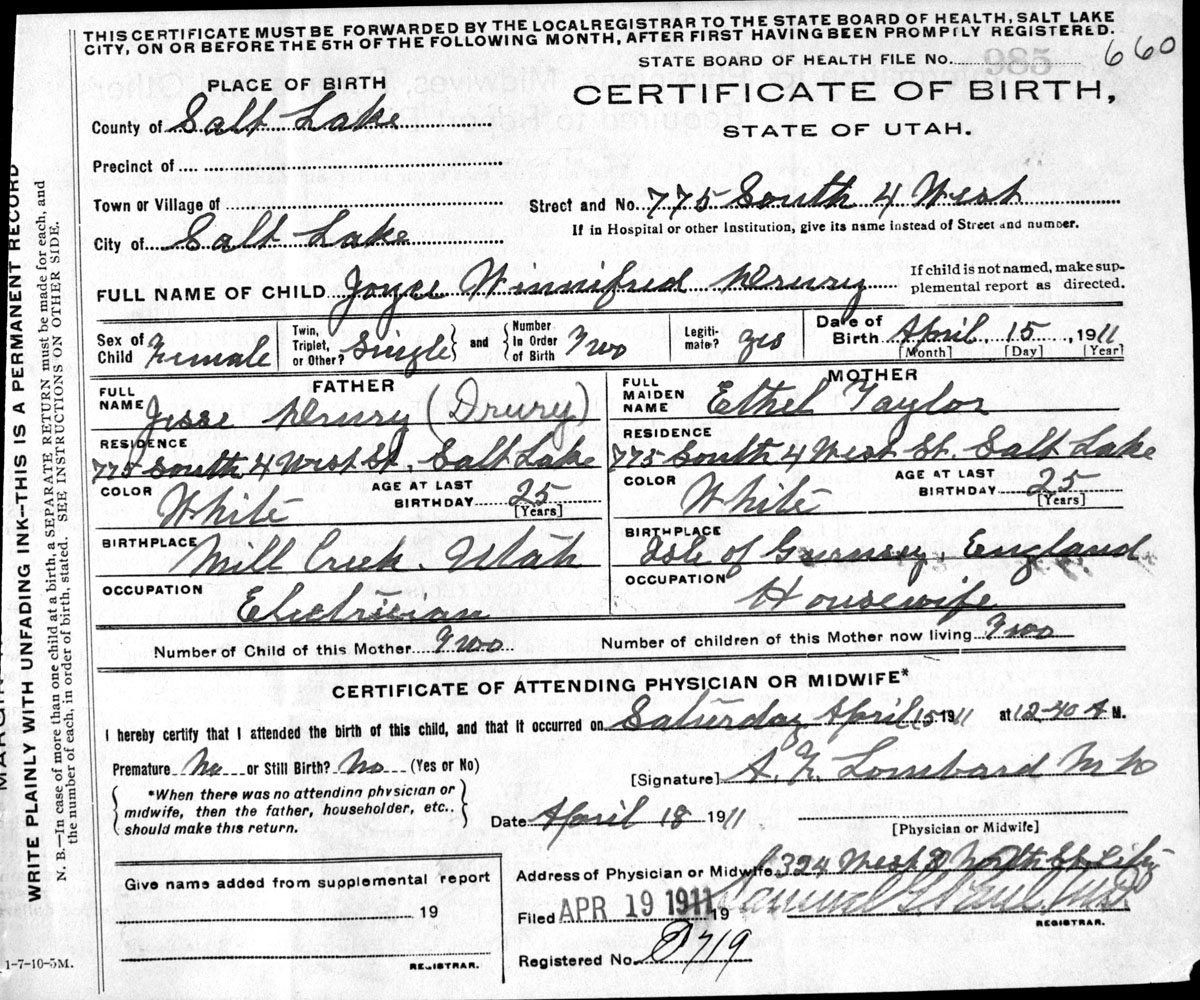 THIS CERTIFICATE MUST BE FORWARDED BY THE LOCAL REGISTRAR TO THE STATE BOARD OF HEALTH, SALT LAKE
CITY, ON OR BEFORE THE 5TH OF THE FOLLOWING MONTH, AFTER FIRST HAVING BEEN PROMPTLY REGISTERED.
STATE BOARD OF HEALTH FILE NO. 985 660
PLACE OF BIRTH
CERTIFICATE OF BIRTH,
STATE OF UTAH.
County of Salt Lake
Precinct of
Town or Village of
Street and No. 775 South 4 West
City of Salt Lake
If in Hospital or other Institution, give its name instead of Street and number.
FULL NAME OF CHILD Joyce Winnifred Drury
If child is not named, make sup-
plemental report as directed.
Sex of Child Female
Twin, Triplet, or Other? Single
and
Number In Order of Birth Two
Legiti-mate? yes
Date of Birth April 15, 1911
[Month] [Day] [Year]
FATHER
FULL NAME Jesse Drury (Drury)
MOTHER
FULL MAIDEN NAME Ethel Taylor
RESIDENCE
775 South 4 West St. Salt Lake
RESIDENCE
775 South 4 West St. Salt Lake
COLOR White
AGE AT LAST BIRTHDAY 25 [Years]
COLOR White
AGE AT LAST BIRTHDAY 25 [Years]
BIRTHPLACE Mill Creek. Utah
BIRTHPLACE Isle of Gurnsey, England
OCCUPATION Electrician
OCCUPATION Housewife
Number of Child of this Mother Two
Number of children of this Mother now living Two
CERTIFICATE OF ATTENDING PHYSICIAN OR MIDWIFE*
I hereby certify that I attended the birth of this child, and that it occurred on Saturday April 15 1911 at 12-40 A M.
Premature No or Still Birth? No (Yes or No)
[Signature] Lombard M D
*When there was no attending physician or
midwife, then the father, householder, etc.,
should make this return.
Date April 18 1911
[Physician or Midwife]
Address of Physician or Midwife 324 West North St. City
Give name added from supplemental report
19
REGISTRAR.
Filed APR 19 1911 19
REGISTRAR.
Registered No. 719
1-7-10-5M.
WRITE PLAINLY WITH UNFADING INK—THIS IS A PERMANENT RECORD
N. B.—In case of more than one child at a birth, a SEPARATE RETURN must be made for each, and
the number of each, in order of birth, stated. SEE INSTRUCTIONS ON OTHER SIDE.